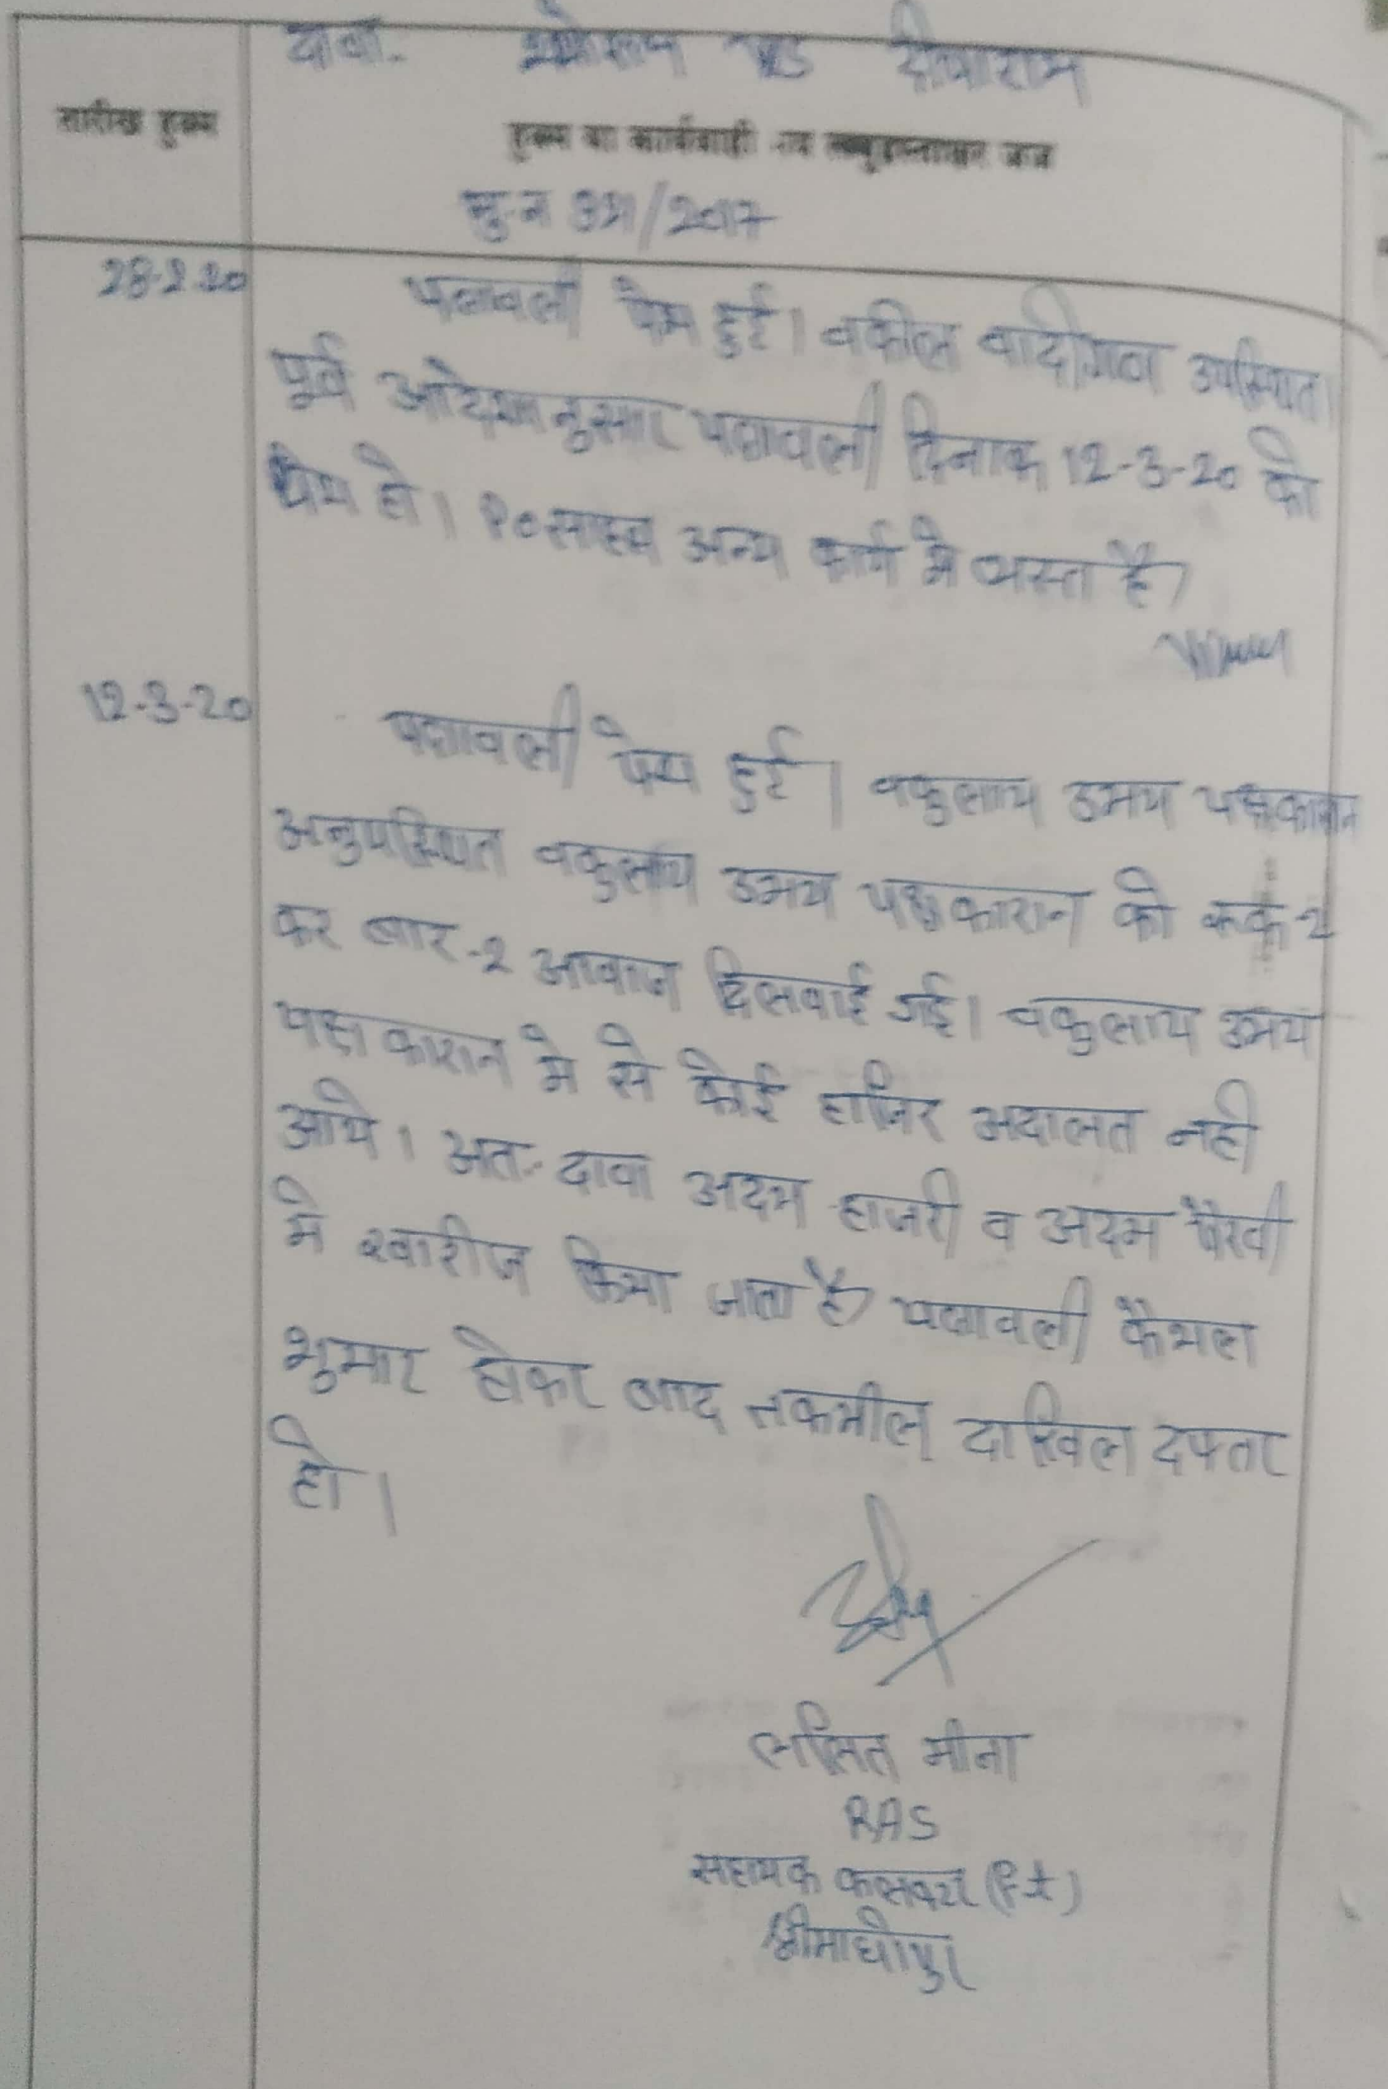 दावा-
तारीख हुक्म
हुक्म या कार्यवाही मय जज
मु.न /2017
28-2-20
पत्रावली पेश हुई। वकील वादीगण उपस्थित।
पूर्व आदेशानुसार पत्रावली दिनाक 12-3-20 को
पेश हो। अन्य कार्य मे व्यस्त है
12-3-20
पत्रावली पेश हुई। वकुलाय उभय पक्षकारान
अनुपस्थित वकुलाय उभय पक्षकारान को रूक-2
कर बार-2 आवाज दिलवाई गई। वकुलाय उभय
पक्षकारान मे से कोई हाजिर अदालत नही
आये। अत: दावा अदम हाजरी व अदम पैरवी
मे खारीज किया जाता है पत्रावली फैशल
शुमार होकर बाद तकमील दाखिल दफ्तर
हो।
ललित मीना
RAS
सहायक कलक्टर
श्रीमाधोपुर